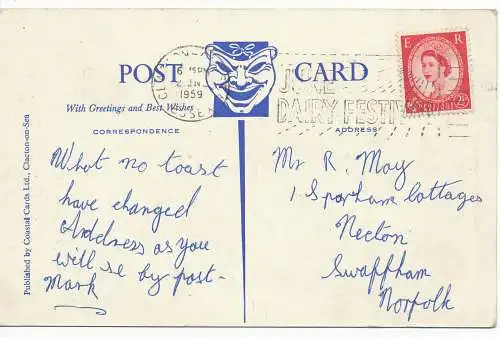 POST CARD
E R
6 15 PM
2 JNE
1959
JUNE
DAIRY FESTI
2½D
With Greetings and Best Wishes
CORRESPONDENCE
ADDRESS
What no toast
have changed
Address as you
will se by post-
Mark
Mr R. Moy
1 Sparham Cottages
Necton
Swaffham
Norfolk
Published by Coastal Cards Ltd., Clacton-on-Sea